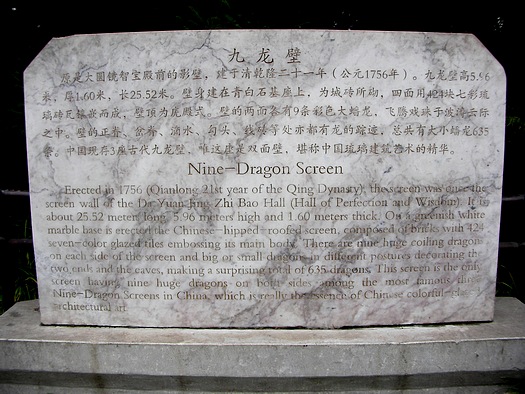 九龙壁
原是大圆镜智宝殿前的影壁，建于清乾隆二十一年（公元1756年）。九龙壁高5.96
米，厚1.60米，长25.52米。壁身建在青白石基座上，为城砖所砌，四面用424块七彩琉
璃砖瓦镶嵌而成，壁顶为庑殿式。壁的两面各有9条彩色大蟠龙，飞腾戏珠于波涛云际
之中。壁的正脊、垂脊、滴水、勾头、线砖等处亦都有龙的踪迹，总共有大小蟠龙635
条。中国现存3座古代九龙壁，唯这座是双面壁，堪称中国琉璃建筑艺术的精华。
Nine-Dragon Screen
Erected in 1756 (Qianlong 21st year of the Qing Dynasty), the screen was once the
screen wall of the Da Yuan Jing Zhi Bao Hall (Hall of Perfection and Wisdom). It is
about 25.52 meter long, 5.96 meters high and 1.60 meters thick. On a greenish white
marble base is erected the Chinese-hipped-roofed screen, composed of bricks with 424
seven-color glazed tiles embossing its main body. There are nine huge coiling dragons
on each side of the screen and big or small dragons in different postures decorating the
two ends and the eaves, making a surprising total of 635 dragons. This screen is the only
screen having nine huge dragons on both sides among the most famous three
Nine-Dragon Screens in China, which is really the essence of Chinese colorful-glazed
architectural art.